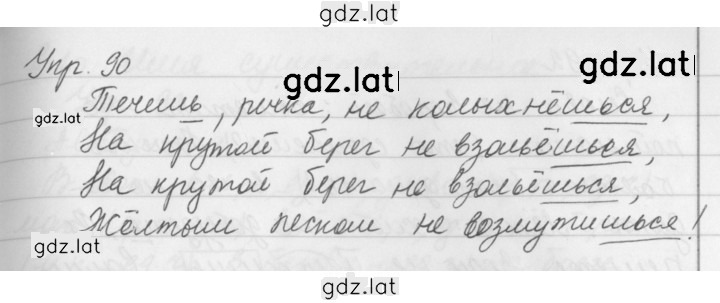 gdz.lat
Упр. 90
gdz.lat
gdz.lat
Течешь, речка, не колыхнёшься,
gdz.lat
На крутой берег не взольёшься,
На крутой берег не взольёшься,
Жёлтым песком не возмутишься!
gdz.lat
gdz.lat
gdz.lat